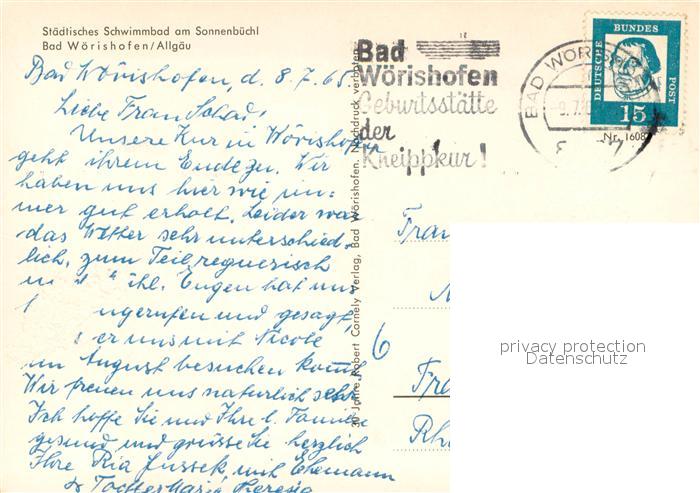 Städtisches Schwimmbad am Sonnenbüchl
Bad Wörishofen/Allgäu
Bad Wörishofen, d. 8.7.65.
Liebe Frau
Unsere Kur in Wörishofen
geht ihrem Ende zu. Wir
haben uns hier wie im=
mer gut erholt. Leider war
das Wetter sehr unterschied=
lich, zum Teil regnerisch
Eugen hat uns
angerufen und gesagt,
er uns mit Nicole
im August besuchen kommt
Wir freuen uns natürlich sehr
Ich hoffe Sie und Ihre l. Familie
gesund und grüsse Sie herzlich
Ihre Ria Jussek, mit Ehemann
Tochter Maria Theresia
30 Jahre Robert Cornely Verlag, Bad Wörishofen. Nachdruck verboten.
Bad
Wörishofen
Geburtsstätte
der
Kneippkur!
BAD WÖRISHOFEN
DEUTSCHE
BUNDES
POST
15
Nr. 1608
Frau
6
Fra
Rh
privacy protection
Datenschutz